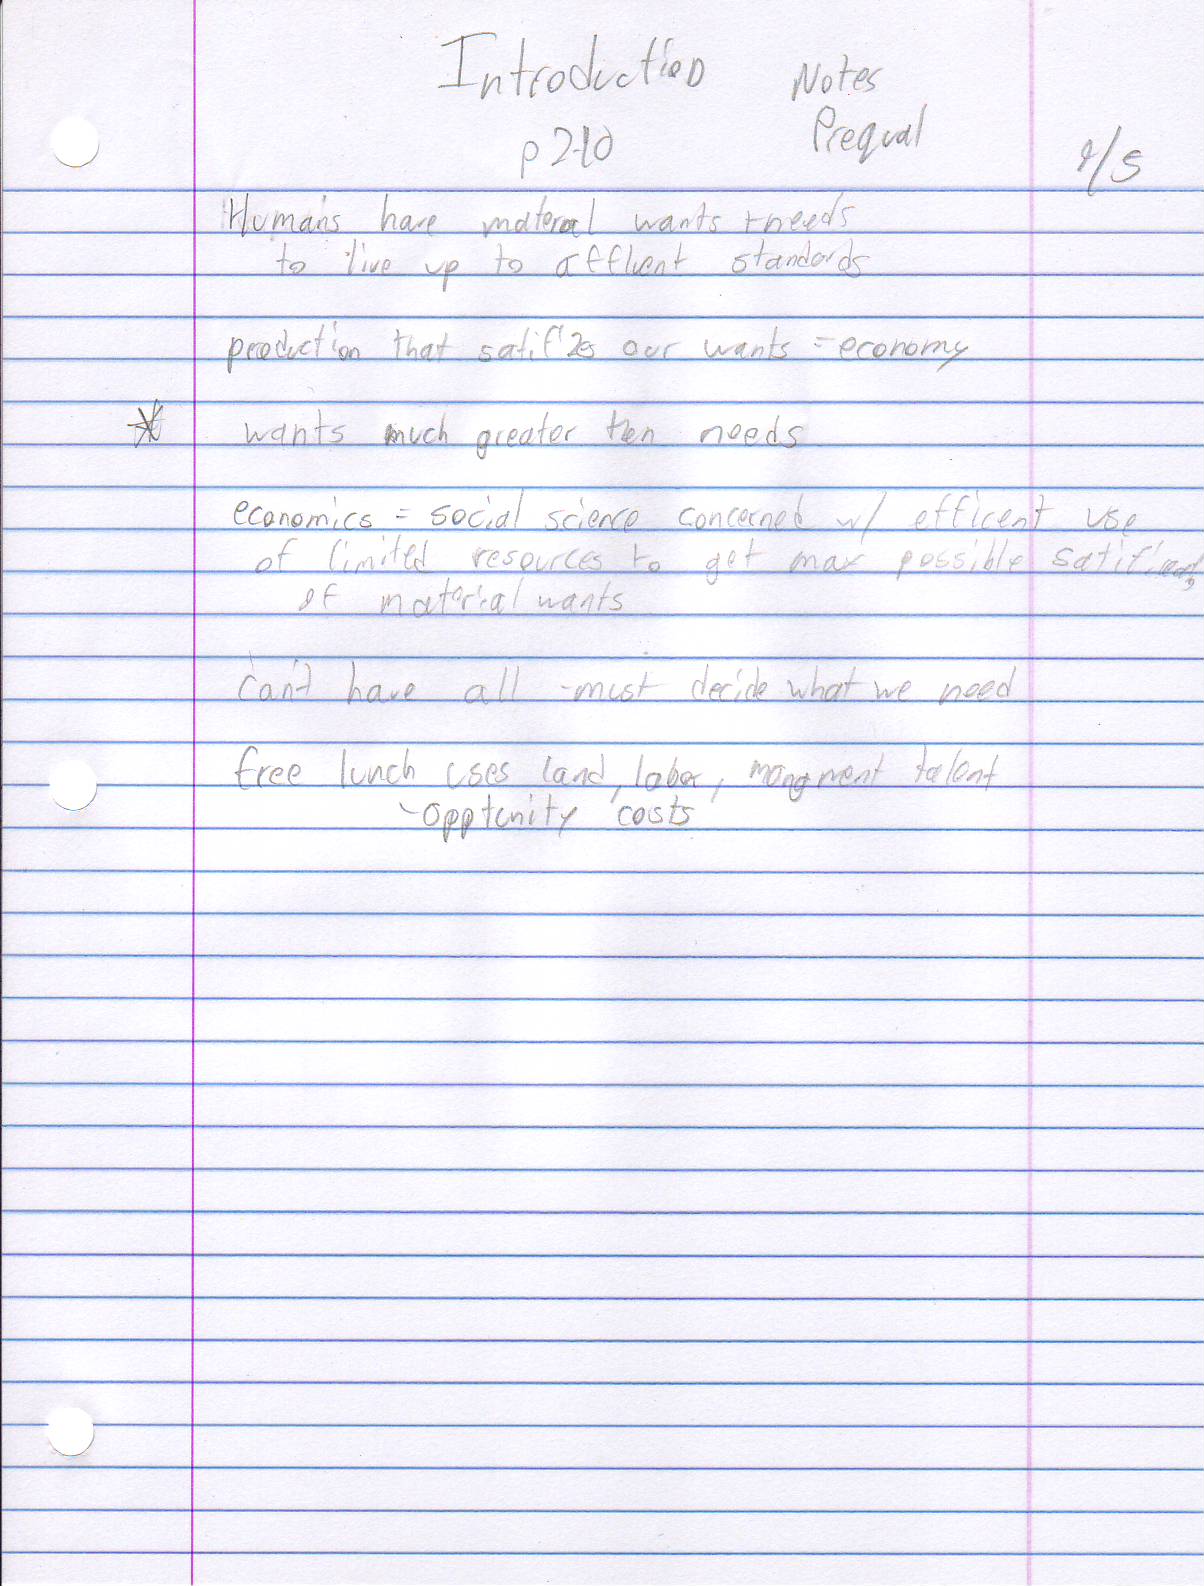 Introduction Notes
p 2-10 Prequal
9/5
Humans have material wants + needs
to live up to affluent standards
production that satifies our wants = economy
* wants much greater then needs
economics = social science concerned w/ efficent use
of limited resources to get max possible
of material wants
can't have all - must decide what we need
free lunch uses land, labor, mangment talent
- opptunity costs